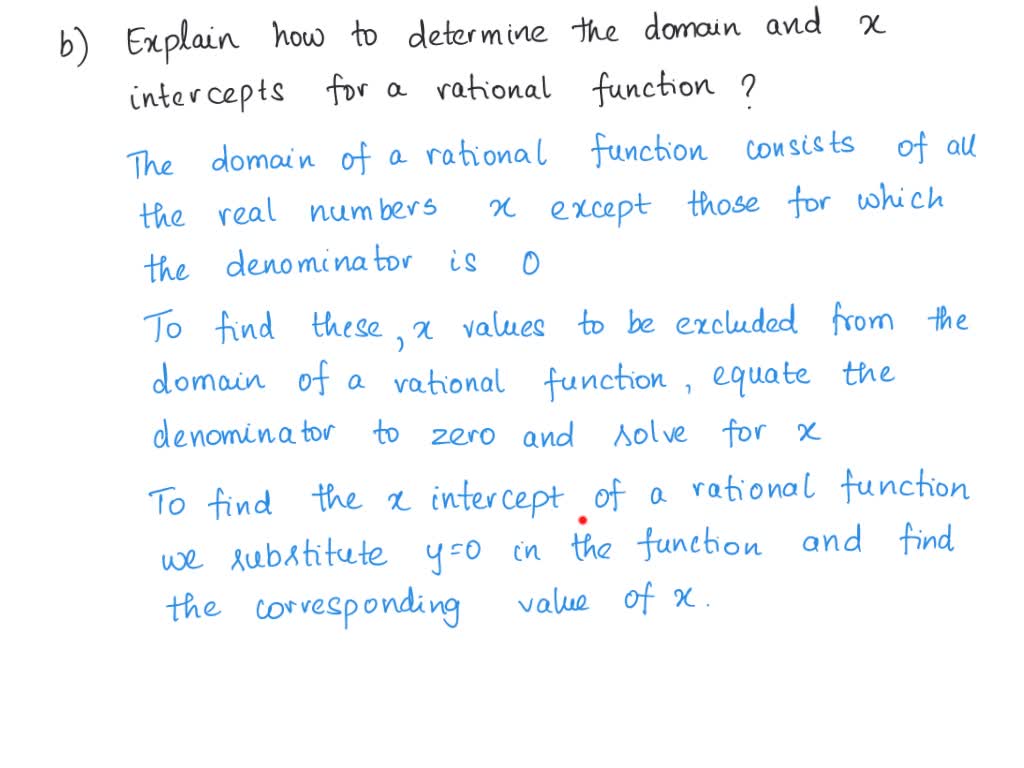 b) Explain how to determine the domain and x
intercepts for a rational function ?
The domain of a rational function consists of all
the real numbers x except those for which
the denominator is 0
To find these, x values to be excluded from the
domain of a rational function, equate the
denominator to zero and solve for x
To find the x intercept of a rational function
we substitute y=0 in the function and find
the corresponding value of x.